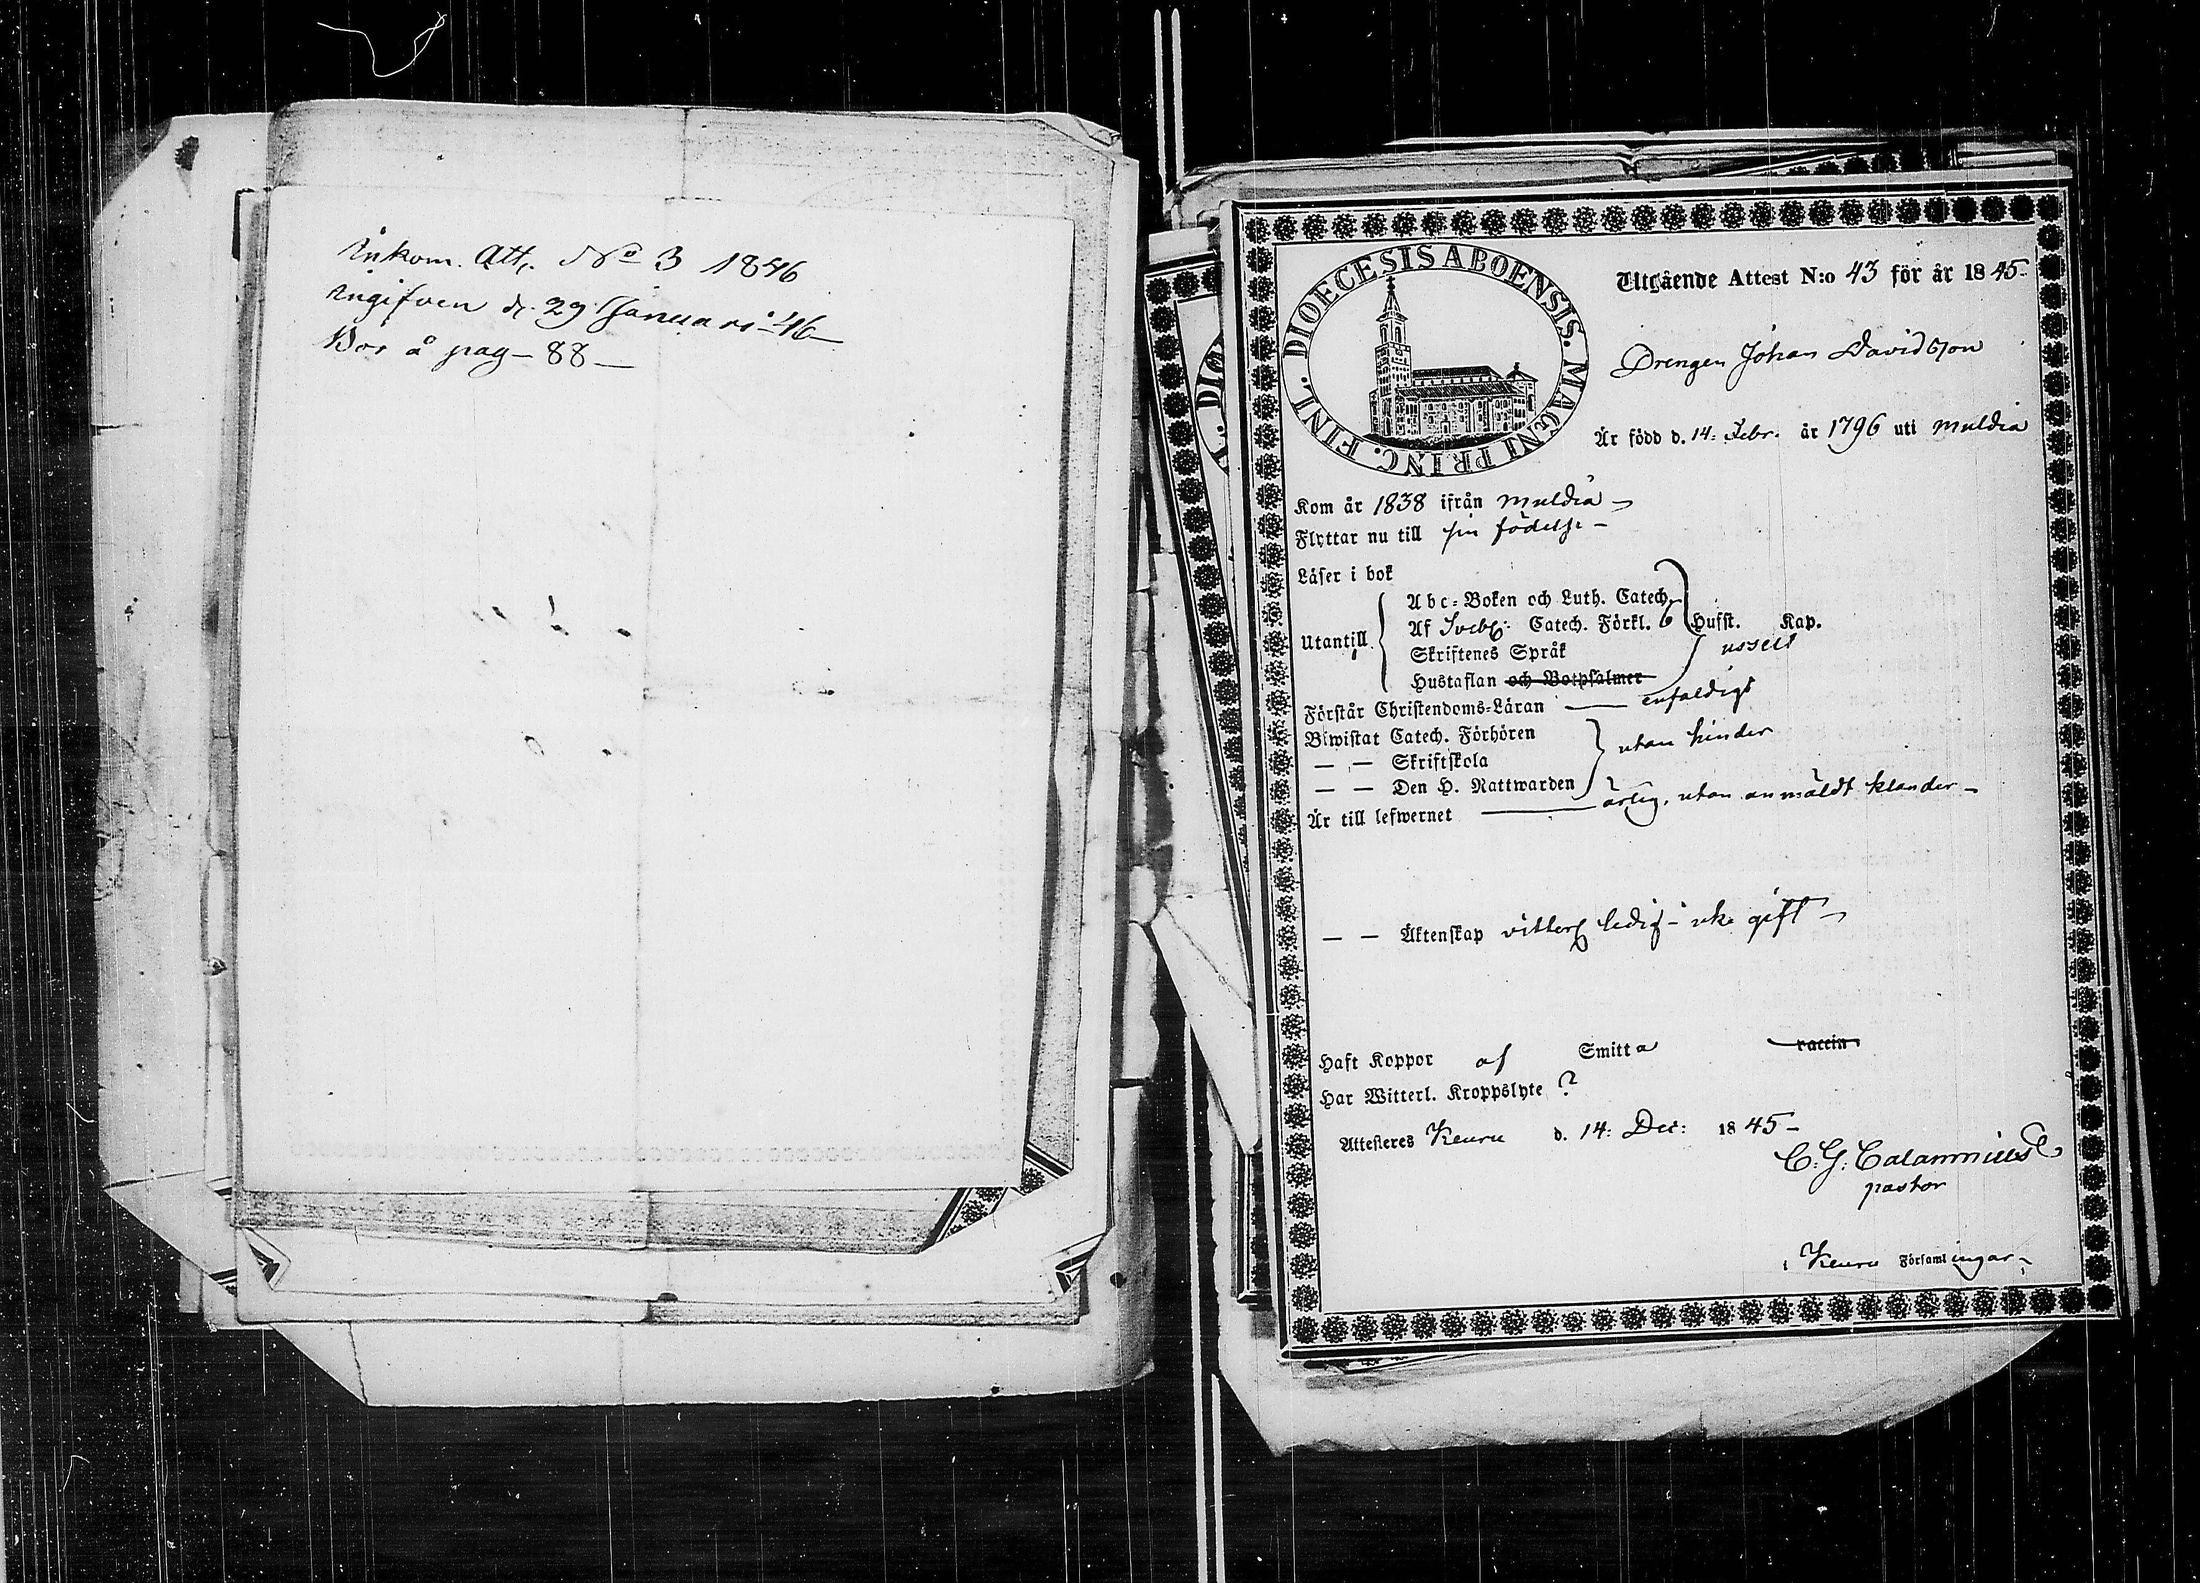 Inkom. Att. No 3 1846
Ingifven d. 29 Januari 46
Bor å pag 88
DIOECESIS ABOENSIS. MAGNI PRINC. FINL.
Utgående Attest N:o 43 för år 1845.
Drengen Johan Davidsson
Är född d. 14: Febr. år 1796 uti Muldia
Kom år 1838 ifrån Muldia
Flyttar nu till sin födelse
Läser i bok
Abc-Boken och Luth. Catech.
Af Svebel: Catech. Förkl. 6 Hufst. Kap.
Utantill
Skriftenes Språk usselt
Hustaflan och Botpsalmer
Förstår Christendoms-Läran enfaldigt
Biwistat Catech. Förhören
utan hinder
— — Skriftskola
— — Den H. Nattwarden
Är till lefwernet ärlig, utan anmäldt klander
— — Äktenskap ledig gift
Haft Koppor af Smitta vaccin
Har Witterl. Kroppslyte ?
Attesteres Keuru d. 14: Dec: 1845
C. G. Calamnius
pastor
i Keuru Församlingar